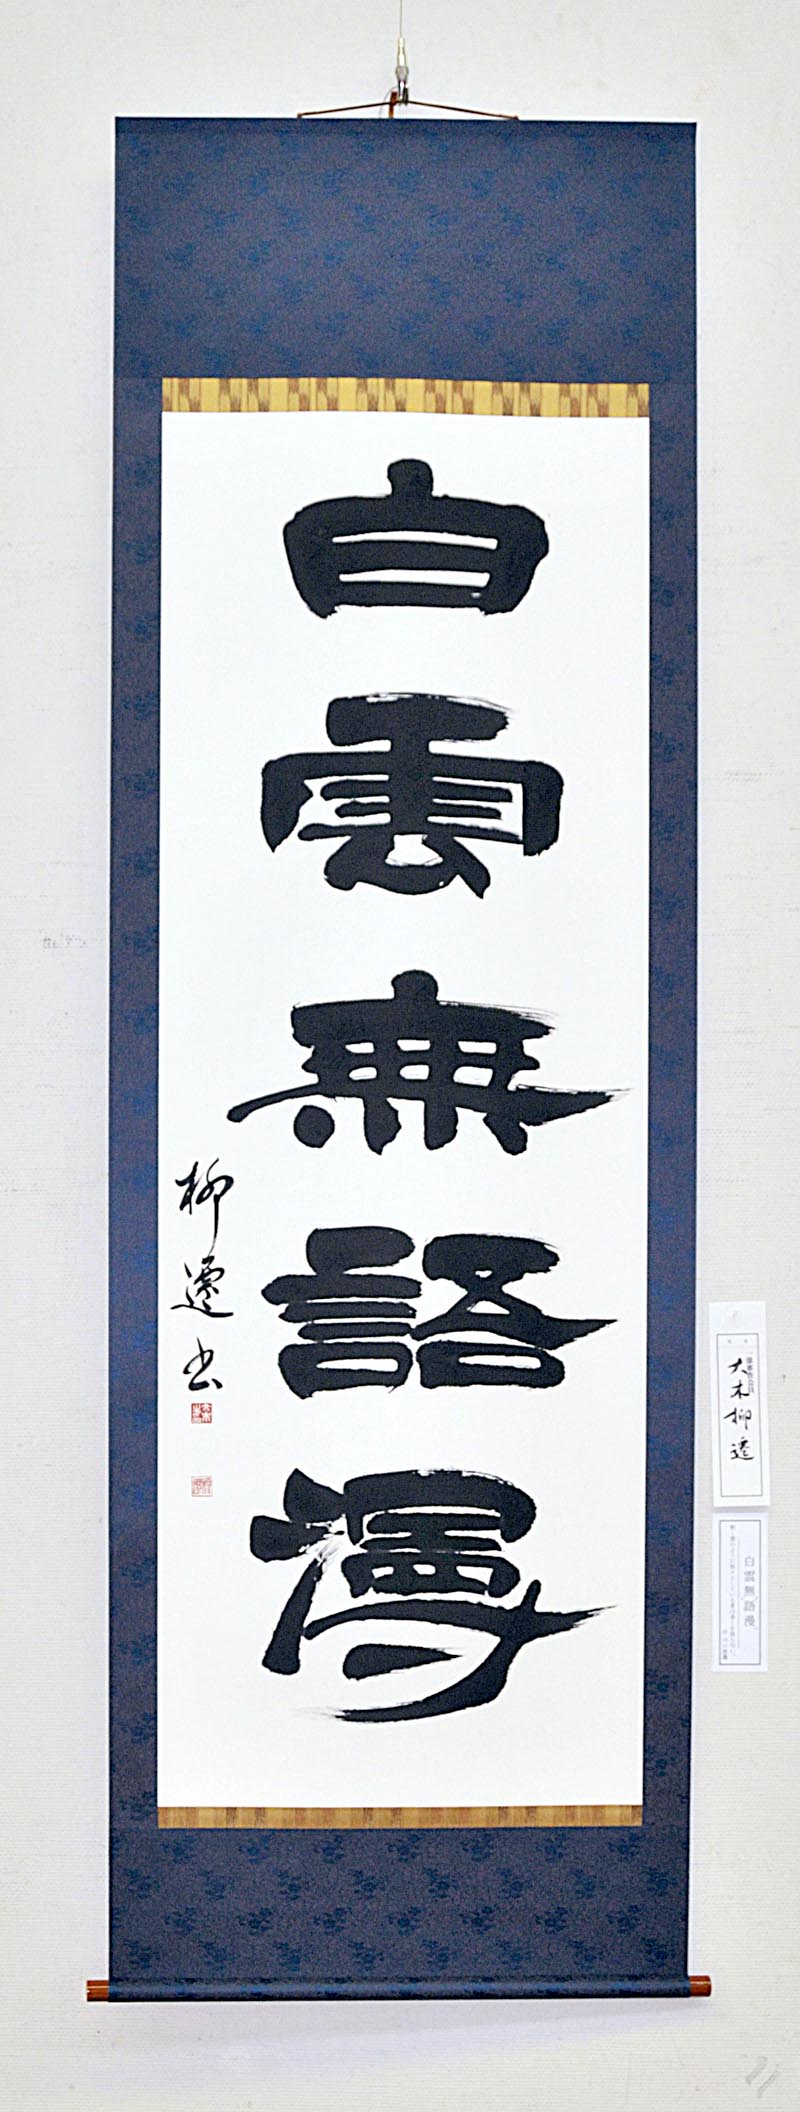 白雲無語漫
柳遷書
大木柳遷
白雲無語漫